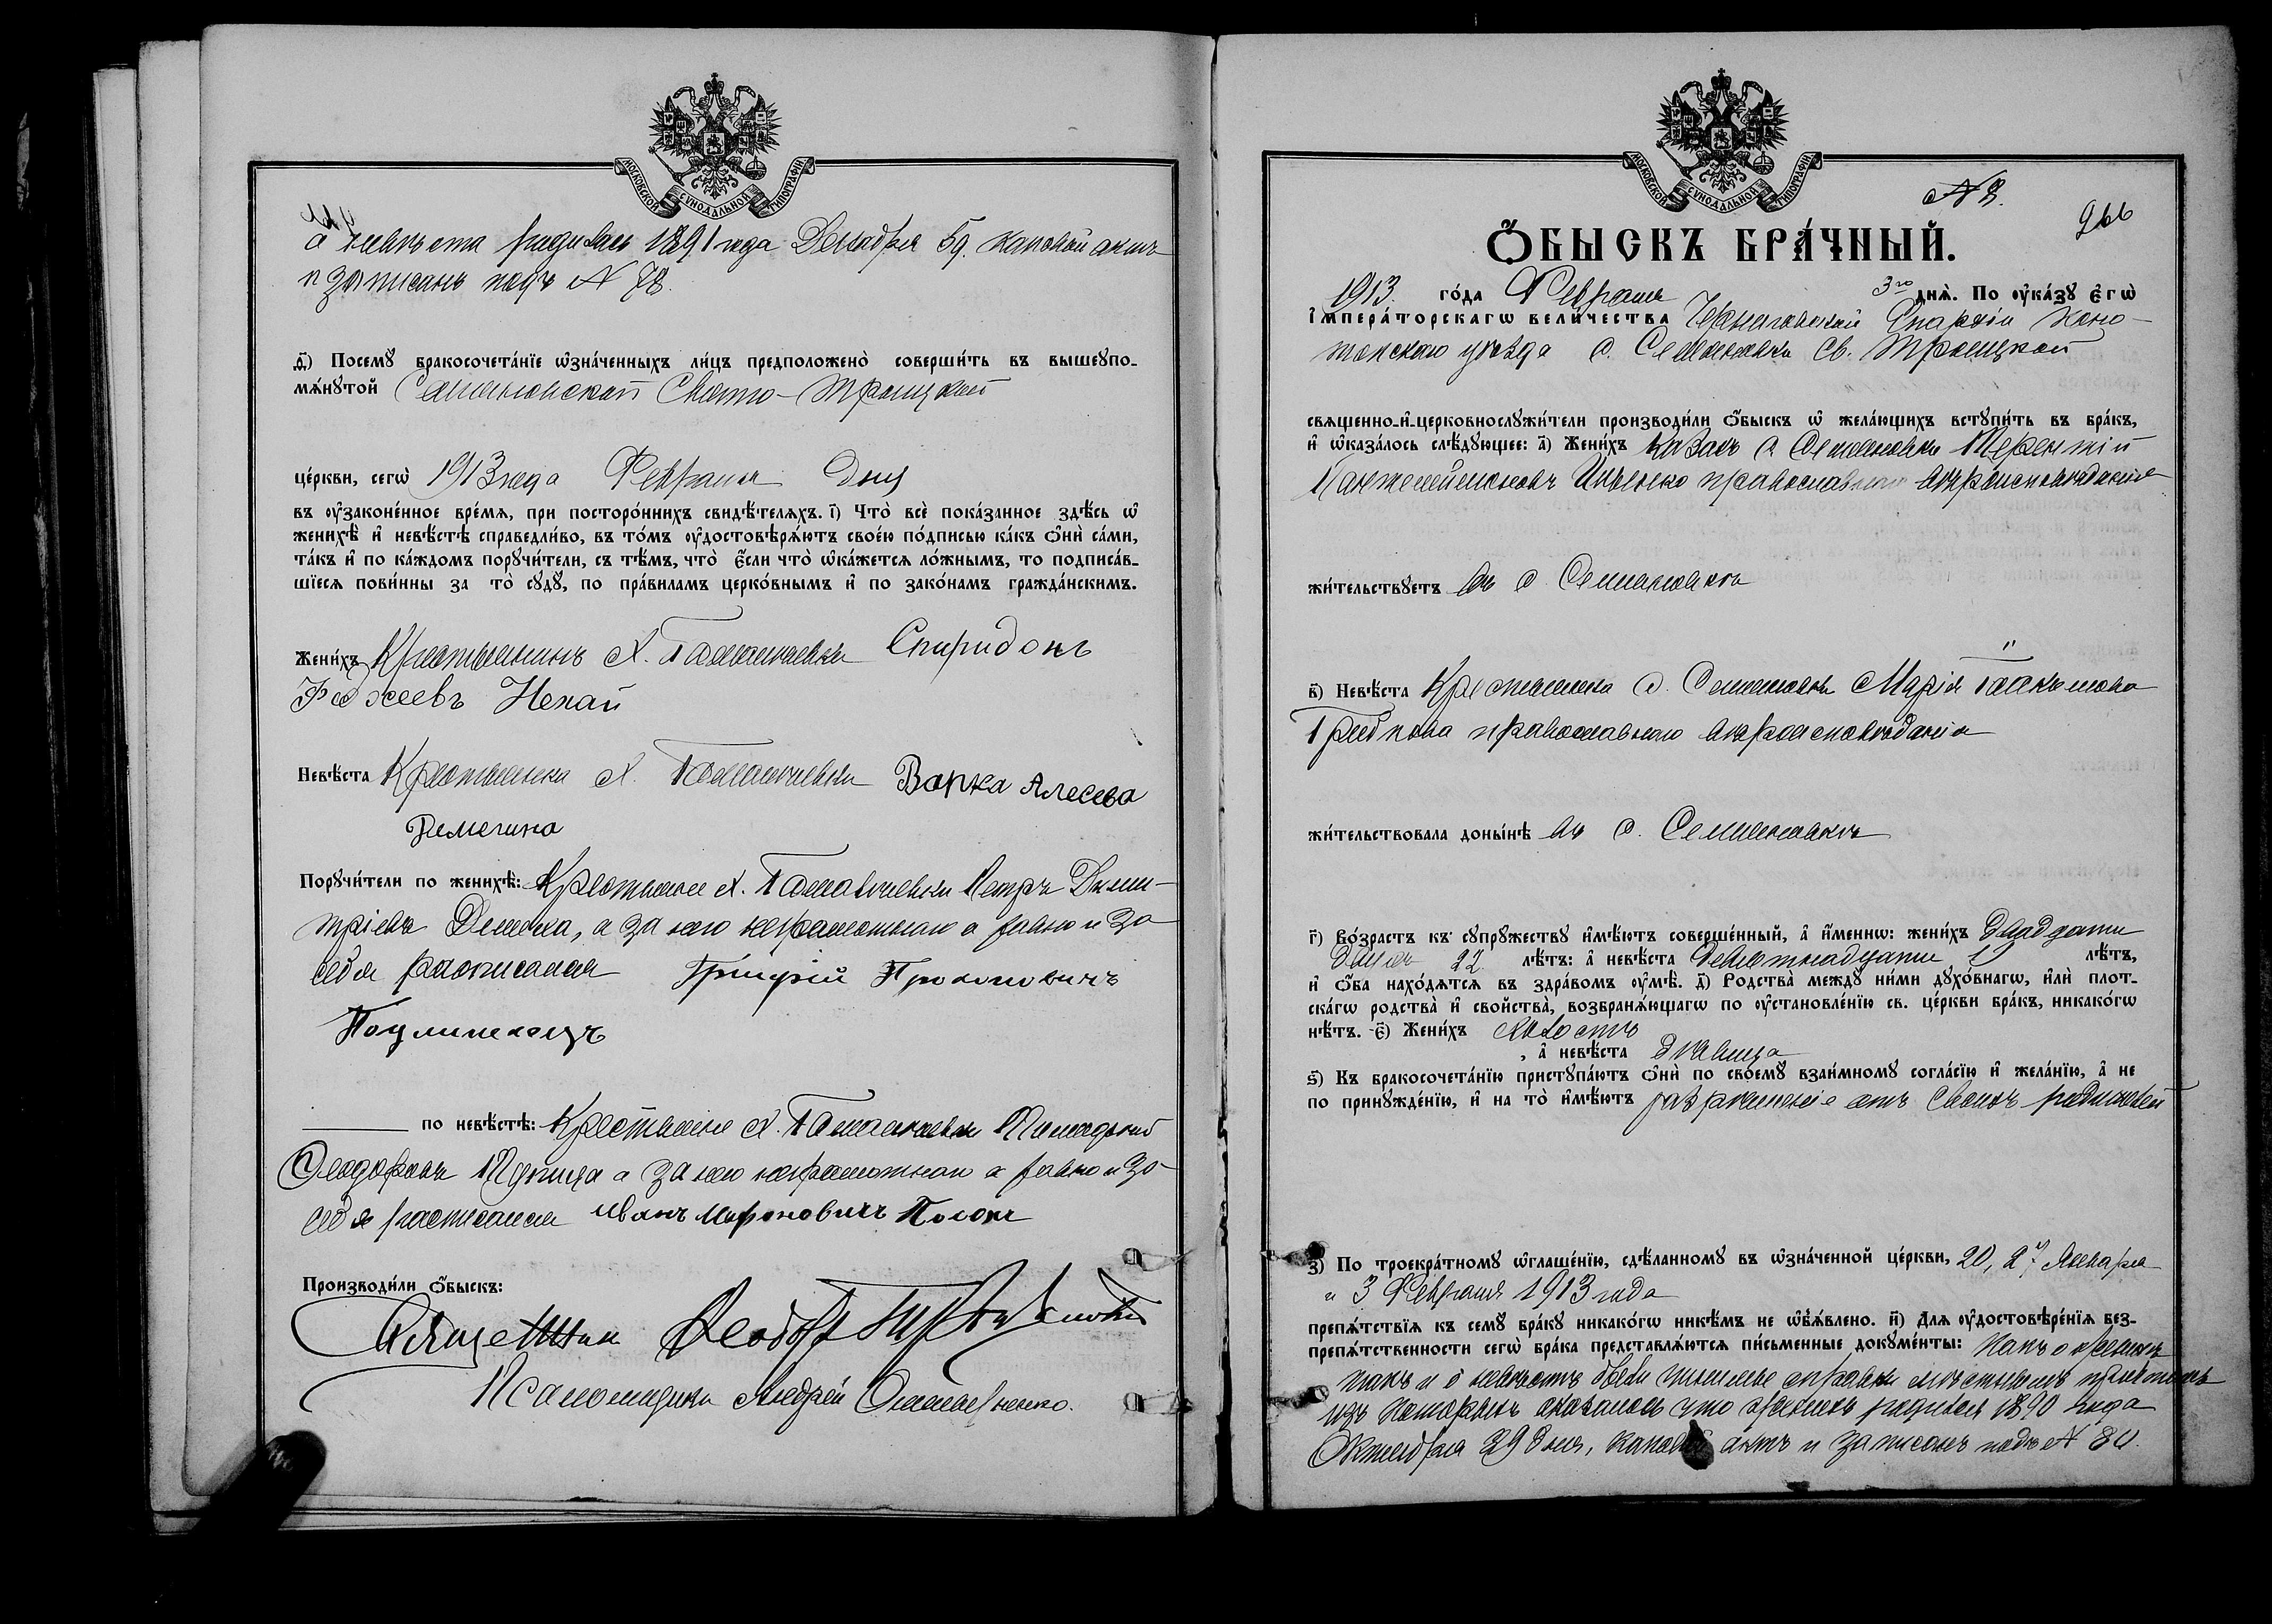 МОСКОВСКОЙ СѴНОДАЛЬНОЙ ТИПОГРАФІИ
а невѣста родилась 1891 года Декабря 5 д. каковой актъ
и записанъ подъ N 78.
д҃) Посемꙋ бракосочета́нїе ѡ҆зна́ченныхъ ли́цъ предположено̀ соверши́ть въ вышеꙋпо-
мѧ́нꙋтой Семяновской Свято-Троицкой
це́ркви, сегѡ̀ 1913 года Февраля дня
въ ᲂу҆законе́нное вре́мѧ, при посторо́ннихъ свидѣ́телѧхъ. і҃) Что̀ всѐ пока́занное здѣ́сь ѡ҆
женихѣ̀ и҆ невѣ́стѣ справедли́во, въ то́мъ ᲂу҆достовѣрѧ́ютъ свое́ю по́дписью ка́къ ѻ҆нѝ са́ми,
та́къ и҆ по ка́ждомъ порꙋчи́тели, съ тѣ́мъ, что̀ є҆́сли что̀ ѡ҆ка́жетсѧ ло́жнымъ, то подписа́в-
шїесѧ пови́нны за то̀ сꙋдꙋ̀, по пра́виламъ церко́внымъ и҆ по зако́намъ гражда́нскимъ.
Жени́хъ Крестьянинъ х. Спиридонъ
Фокеевъ Некай
Невѣ́ста Крестьянка х. Варка
Порꙋчи́тели по женихѣ̀: Крестьяне х. Петръ Дими-
тріевъ а за него неграмотнаго а равно и за
себя росписался Григорій Прокоповичъ
по невѣ́стѣ: Крестьяне х.
Ѳеодоровъ а за него неграмотнаго а равно и за
себя расписался Иванъ Мироновичъ
Производи́ли ѻ҆́быскъ:
Священникъ Ѳеодоръ
Псаломщикъ Андрей
МОСКОВСКОЙ СѴНОДАЛЬНОЙ ТИПОГРАФІИ
N 8.
266
Ѻ҆́БЫСКЪ БРА́ЧНЫЙ.
1913 го́да Февраля 3го днѧ̀. По ᲂу҆ка́зꙋ є҆гѡ̀
і҆мпера́торскагѡ вели́чества Черниговской Епархіи Коно-
топскаго уѣзда с. Семяновки Св. Троицкой
свѧщенно-и҆-церковнослꙋжи́тели производи́ли ѻ҆́быскъ ѡ҆ жела́ющихъ встꙋпи́ть въ бра́къ,
и҆ ѡ҆каза́лось слѣ́дꙋющее: а҃) Жени́хъ казакъ с. Семяновки Терентій
Пантелеймоновъ Ивченко православнаго вѣроисповѣданія
жи́тельствꙋетъ въ с. Семяновкѣ
в҃) Невѣ́ста Крестьянка с. Семяновки Марія
православнаго вѣроисповѣданія
жи́тельствовала доны́нѣ въ с. Семяновкѣ
г҃) Во́зрастъ къ сꙋпрꙋ́жествꙋ и҆мѣ́ютъ соверше́нный, а҆ и҆́меннѡ: жени́хъ двадцати
двухъ 22 лѣ́тъ: а҆ невѣ́ста девятнадцати лѣ́тъ,
и҆ ѻ҆́ба нахо́дѧтсѧ въ здра́вомъ ᲂу҆мѣ̀. д҃) Родства̀ междꙋ ни́ми дꙋхо́внагѡ, и҆лѝ плот-
ска́гѡ родства̀ и҆ свойства̀, возбранѧ́ющагѡ по ᲂу҆становле́нїю св. це́ркви бра́къ, никако́гѡ
нѣ́тъ. є҃) Жени́хъ холостъ
, а҆ невѣ́ста дѣвица
ѕ҃) Къ бракосочета́нїю пристꙋпа́ютъ ѻ҆нѝ по своемꙋ̀ взаи́мномꙋ согла́сїю и҆ жела́нїю, а҆ не
по принꙋжде́нїю, и҆ на то̀ и҆мѣ́ютъ разрѣшеніе отъ своихъ родителей
з҃) По троекра́тномꙋ ѡ҆глаше́нїю, сдѣ́ланномꙋ въ ѡ҆зна́ченной це́ркви, 20, 27 Января
и 3 Февраля 1913 года
препѧ́тствїѧ къ семꙋ̀ бра́кꙋ никако́гѡ никѣ́мъ не ѡ҆б̾ѧ́влено. и҃) Длѧ ᲂу҆достовѣре́нїѧ без-
препѧ́тственности сегѡ̀ бра́ка представлѧ́ютсѧ пи́сьменные докꙋме́нты: Какъ о женихѣ
такъ и о невѣстѣ справки мѣстнымъ причтомъ
изъ которыхъ оказалось что женихъ родился 1890 года
Октября 29 дня, каковой актъ и записанъ подъ N 80.